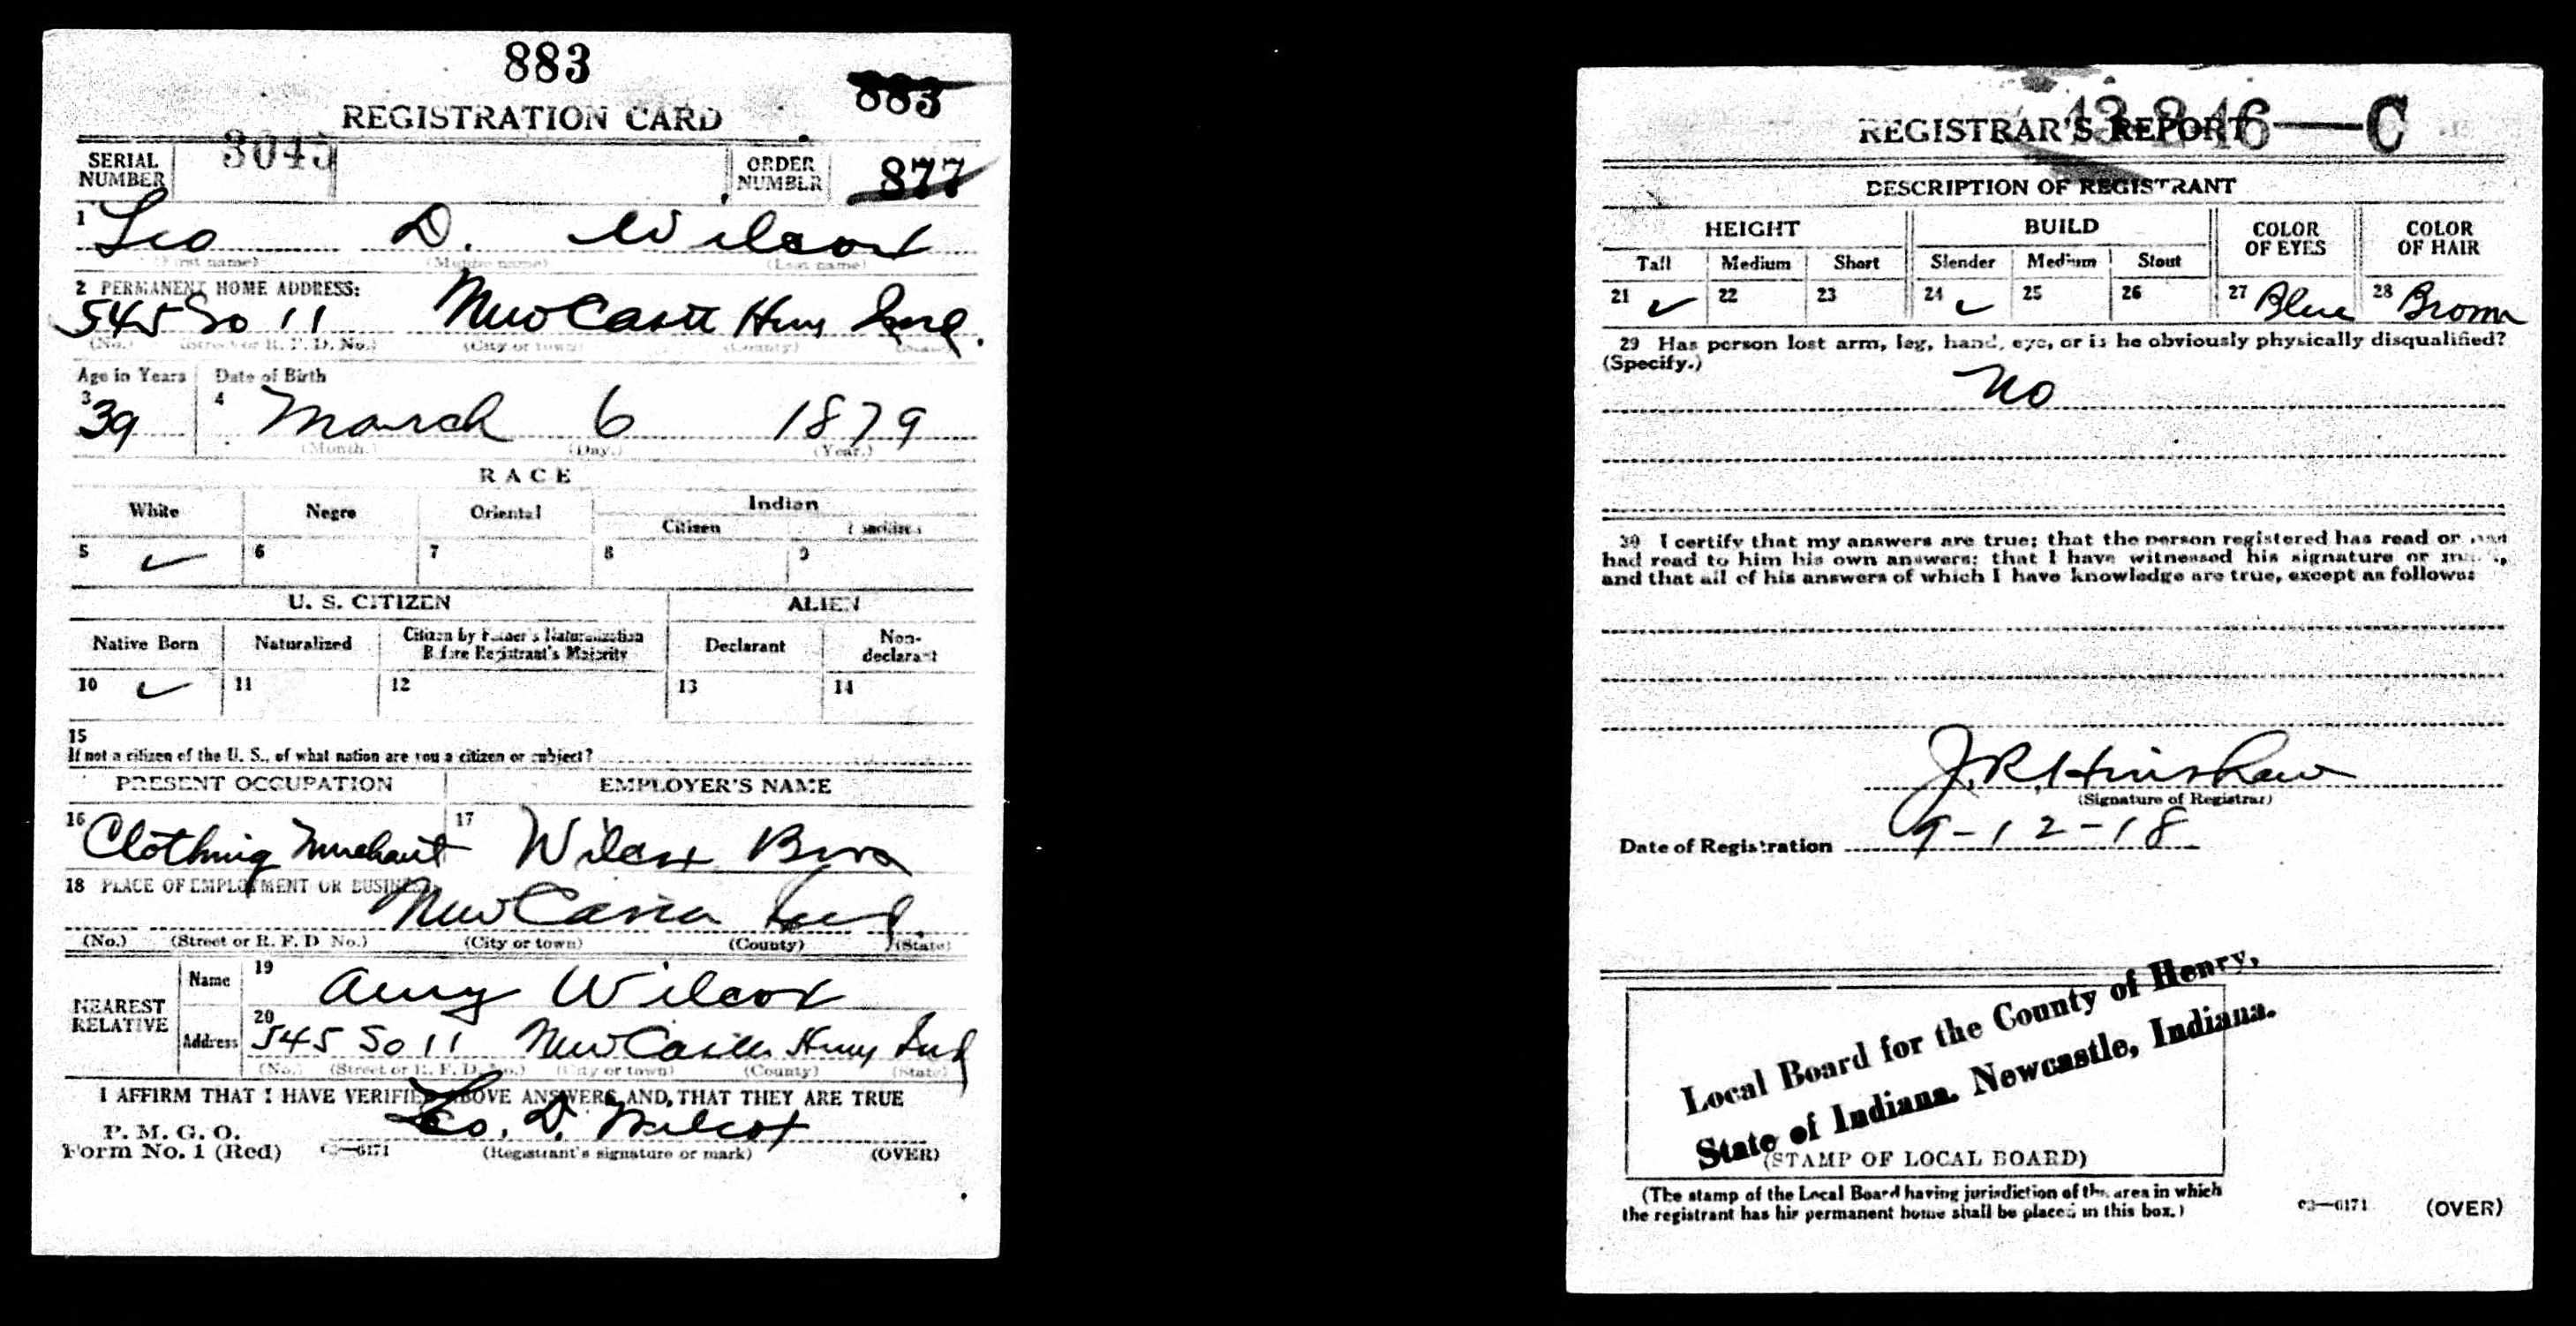 883
883
REGISTRATION CARD
SERIAL NUMBER 3045 ORDER NUMBER 877
1 Leo D. Wilcox
(First name) (Middle name) (Last name)
2 PERMANENT HOME ADDRESS:
545 So 11 New Castle Henry Ind.
(No.) (Street or R. F. D. No.) (City or town) (County) (State)
Age in Years Date of Birth
3 39 4 March 6 1879
(Month.) (Day.) (Year.)
RACE
White Negro Oriental Indian
Citizen Noncitizen
5 ✓ 6 7 8 9
U. S. CITIZEN ALIEN
Native Born Naturalized Citizen by Father's Naturalization Before Registrant's Majority Declarant Non-declarant
10 ✓ 11 12 13 14
15
If not a citizen of the U. S., of what nation are you a citizen or subject?
PRESENT OCCUPATION EMPLOYER'S NAME
16 Clothing Merchant 17 Wilcox Bros
18 PLACE OF EMPLOYMENT OR BUSINESS:
New Castle Ind.
(No.) (Street or R. F. D. No.) (City or town) (County) (State)
NEAREST RELATIVE
Name 19 Amy Wilcox
Address 20 545 So 11 New Castle Henry Ind
(No.) (Street or R. F. D. No.) (City or town) (County) (State)
I AFFIRM THAT I HAVE VERIFIED ABOVE ANSWERS AND THAT THEY ARE TRUE
P. M. G. O.
Form No. 1 (Red) 03—6171 Leo. D. Wilcox
(Registrant's signature or mark) (OVER)
REGISTRAR'S REPORT
C
DESCRIPTION OF REGISTRANT
HEIGHT BUILD COLOR OF EYES COLOR OF HAIR
Tall Medium Short Slender Medium Stout
21 ✓ 22 23 24 ✓ 25 26 27 Blue 28 Brown
29 Has person lost arm, leg, hand, eye, or is he obviously physically disqualified?
(Specify.)
No
30 I certify that my answers are true; that the person registered has read or has
had read to him his own answers; that I have witnessed his signature or mark,
and that all of his answers of which I have knowledge are true, except as follows:
J. R. Hinshaw
(Signature of Registrar)
Date of Registration 9-12-18
Local Board for the County of Henry,
State of Indiana. Newcastle, Indiana.
(STAMP OF LOCAL BOARD)
(The stamp of the Local Board having jurisdiction of the area in which
the registrant has his permanent home shall be placed in this box.) 03—6171 (OVER)